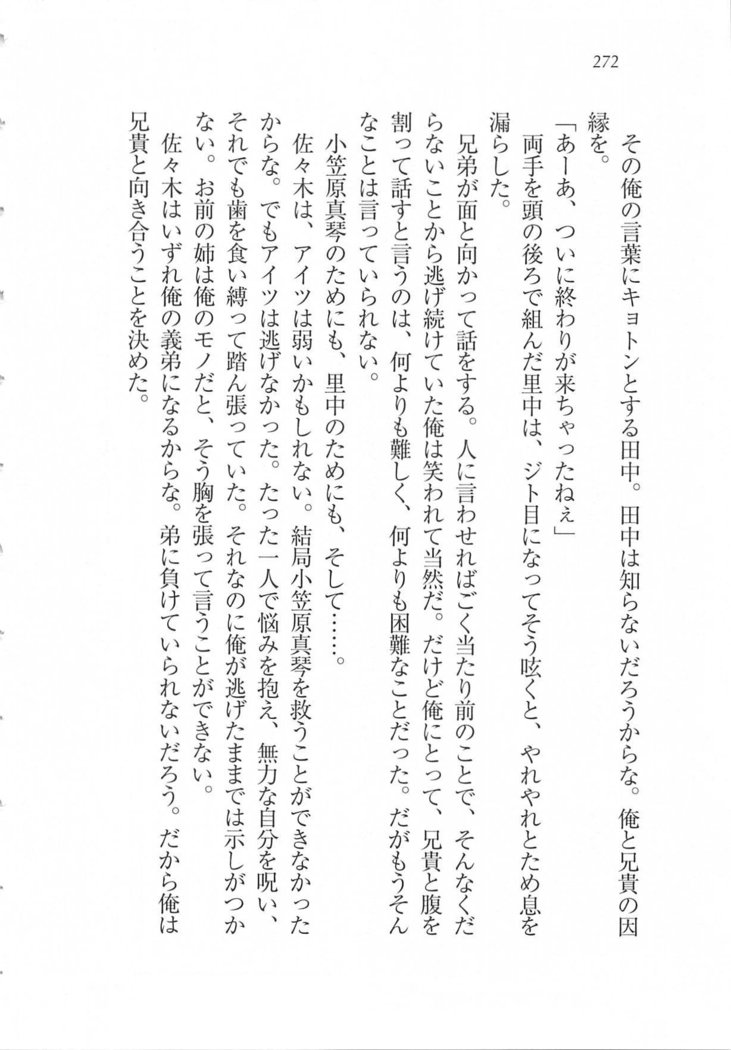 272
　その俺の言葉にキョトンとする田中。田中は知らないだろうからな。俺と兄貴の因
縁を。
「あーあ、ついに終わりが来ちゃったねぇ」
　両手を頭の後ろで組んだ里中は、ジト目になってそう呟くと、やれやれとため息を
漏らした。
　兄弟が面と向かって話をする。人に言わせればごく当たり前のことで、そんなくだ
らないことから逃げ続けていた俺は笑われて当然だ。だけど俺にとって、兄貴と腹を
割って話すと言うのは、何よりも難しく、何よりも困難なことだった。だがもうそん
なことは言っていられない。
　小笠原真琴のためにも、里中のためにも、そして……。
　佐々木は、アイツは弱いかもしれない。結局小笠原真琴を救うことができなかった
からな。でもアイツは逃げなかった。たった一人で悩みを抱え、無力な自分を呪い、
それでも歯を食い縛って踏ん張っていた。それなのに俺が逃げたままでは示しがつか
ない。お前の姉は俺のモノだと、そう胸を張って言うことができない。
　佐々木はいずれ俺の義弟になるからな。弟に負けていられないだろう。だから俺は
兄貴と向き合うことを決めた。